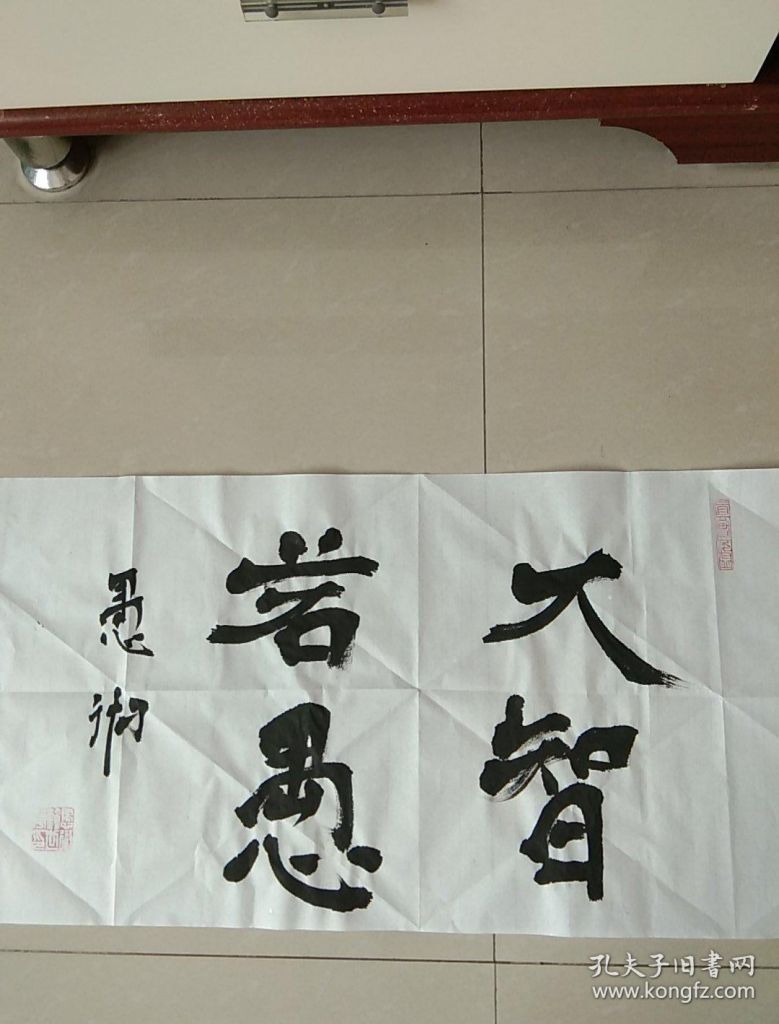 大智
若愚
愚
孔夫子旧書网
www.kongfz.com